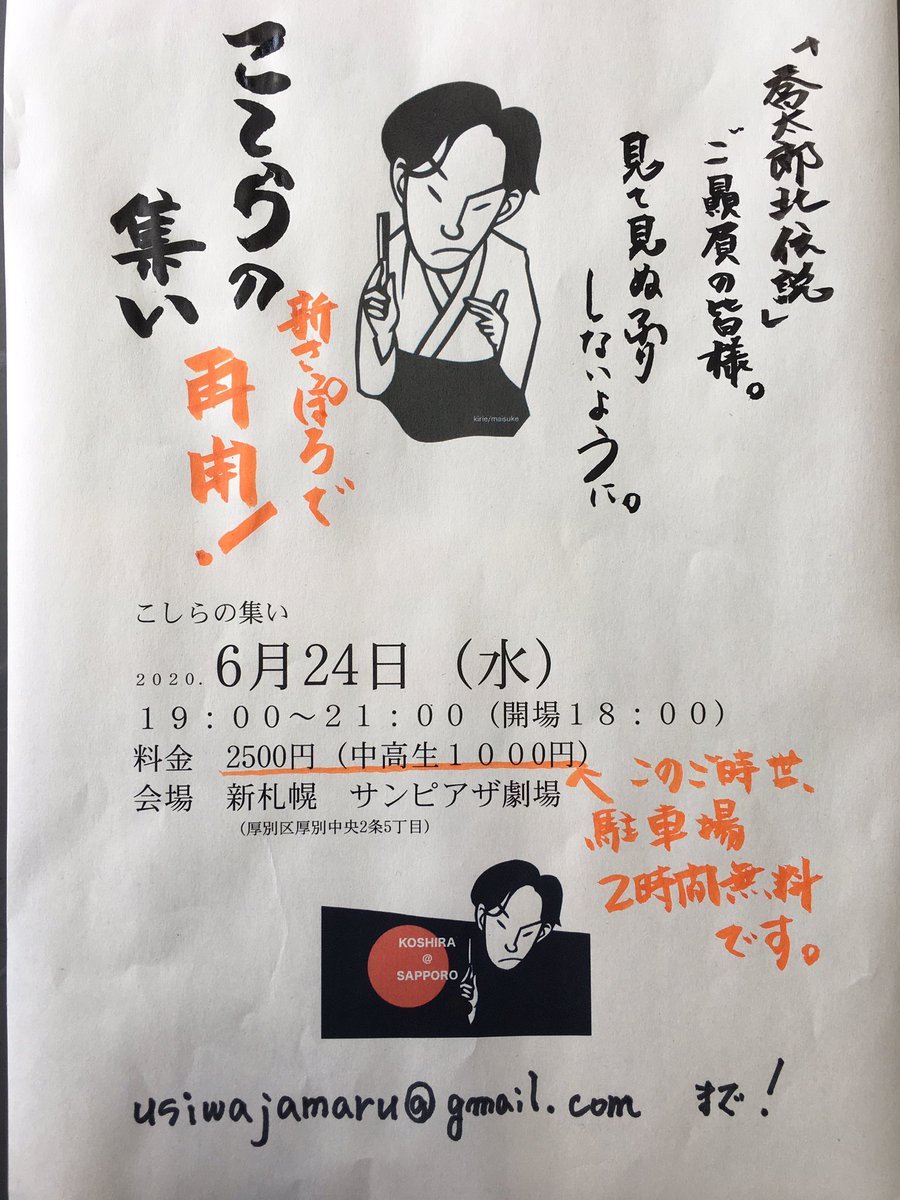 「喬太郎北伝説」
ご贔屓の皆様。
見て見ぬふり
しないように。
こしらの
集い
新さぽろで
再開!
kirie/maisuke
こしらの集い
2020. 6月24日（水）
19：00〜21：00（開場18：00）
料金　2500円（中高生1000円）
会場　新札幌　サンピアザ劇場
（厚別区厚別中央2条5丁目）
へ このご時世、
駐車場
2時間無料
です。
KOSHIRA
@
SAPPORO
usiwajamaru@gmail.com まで!